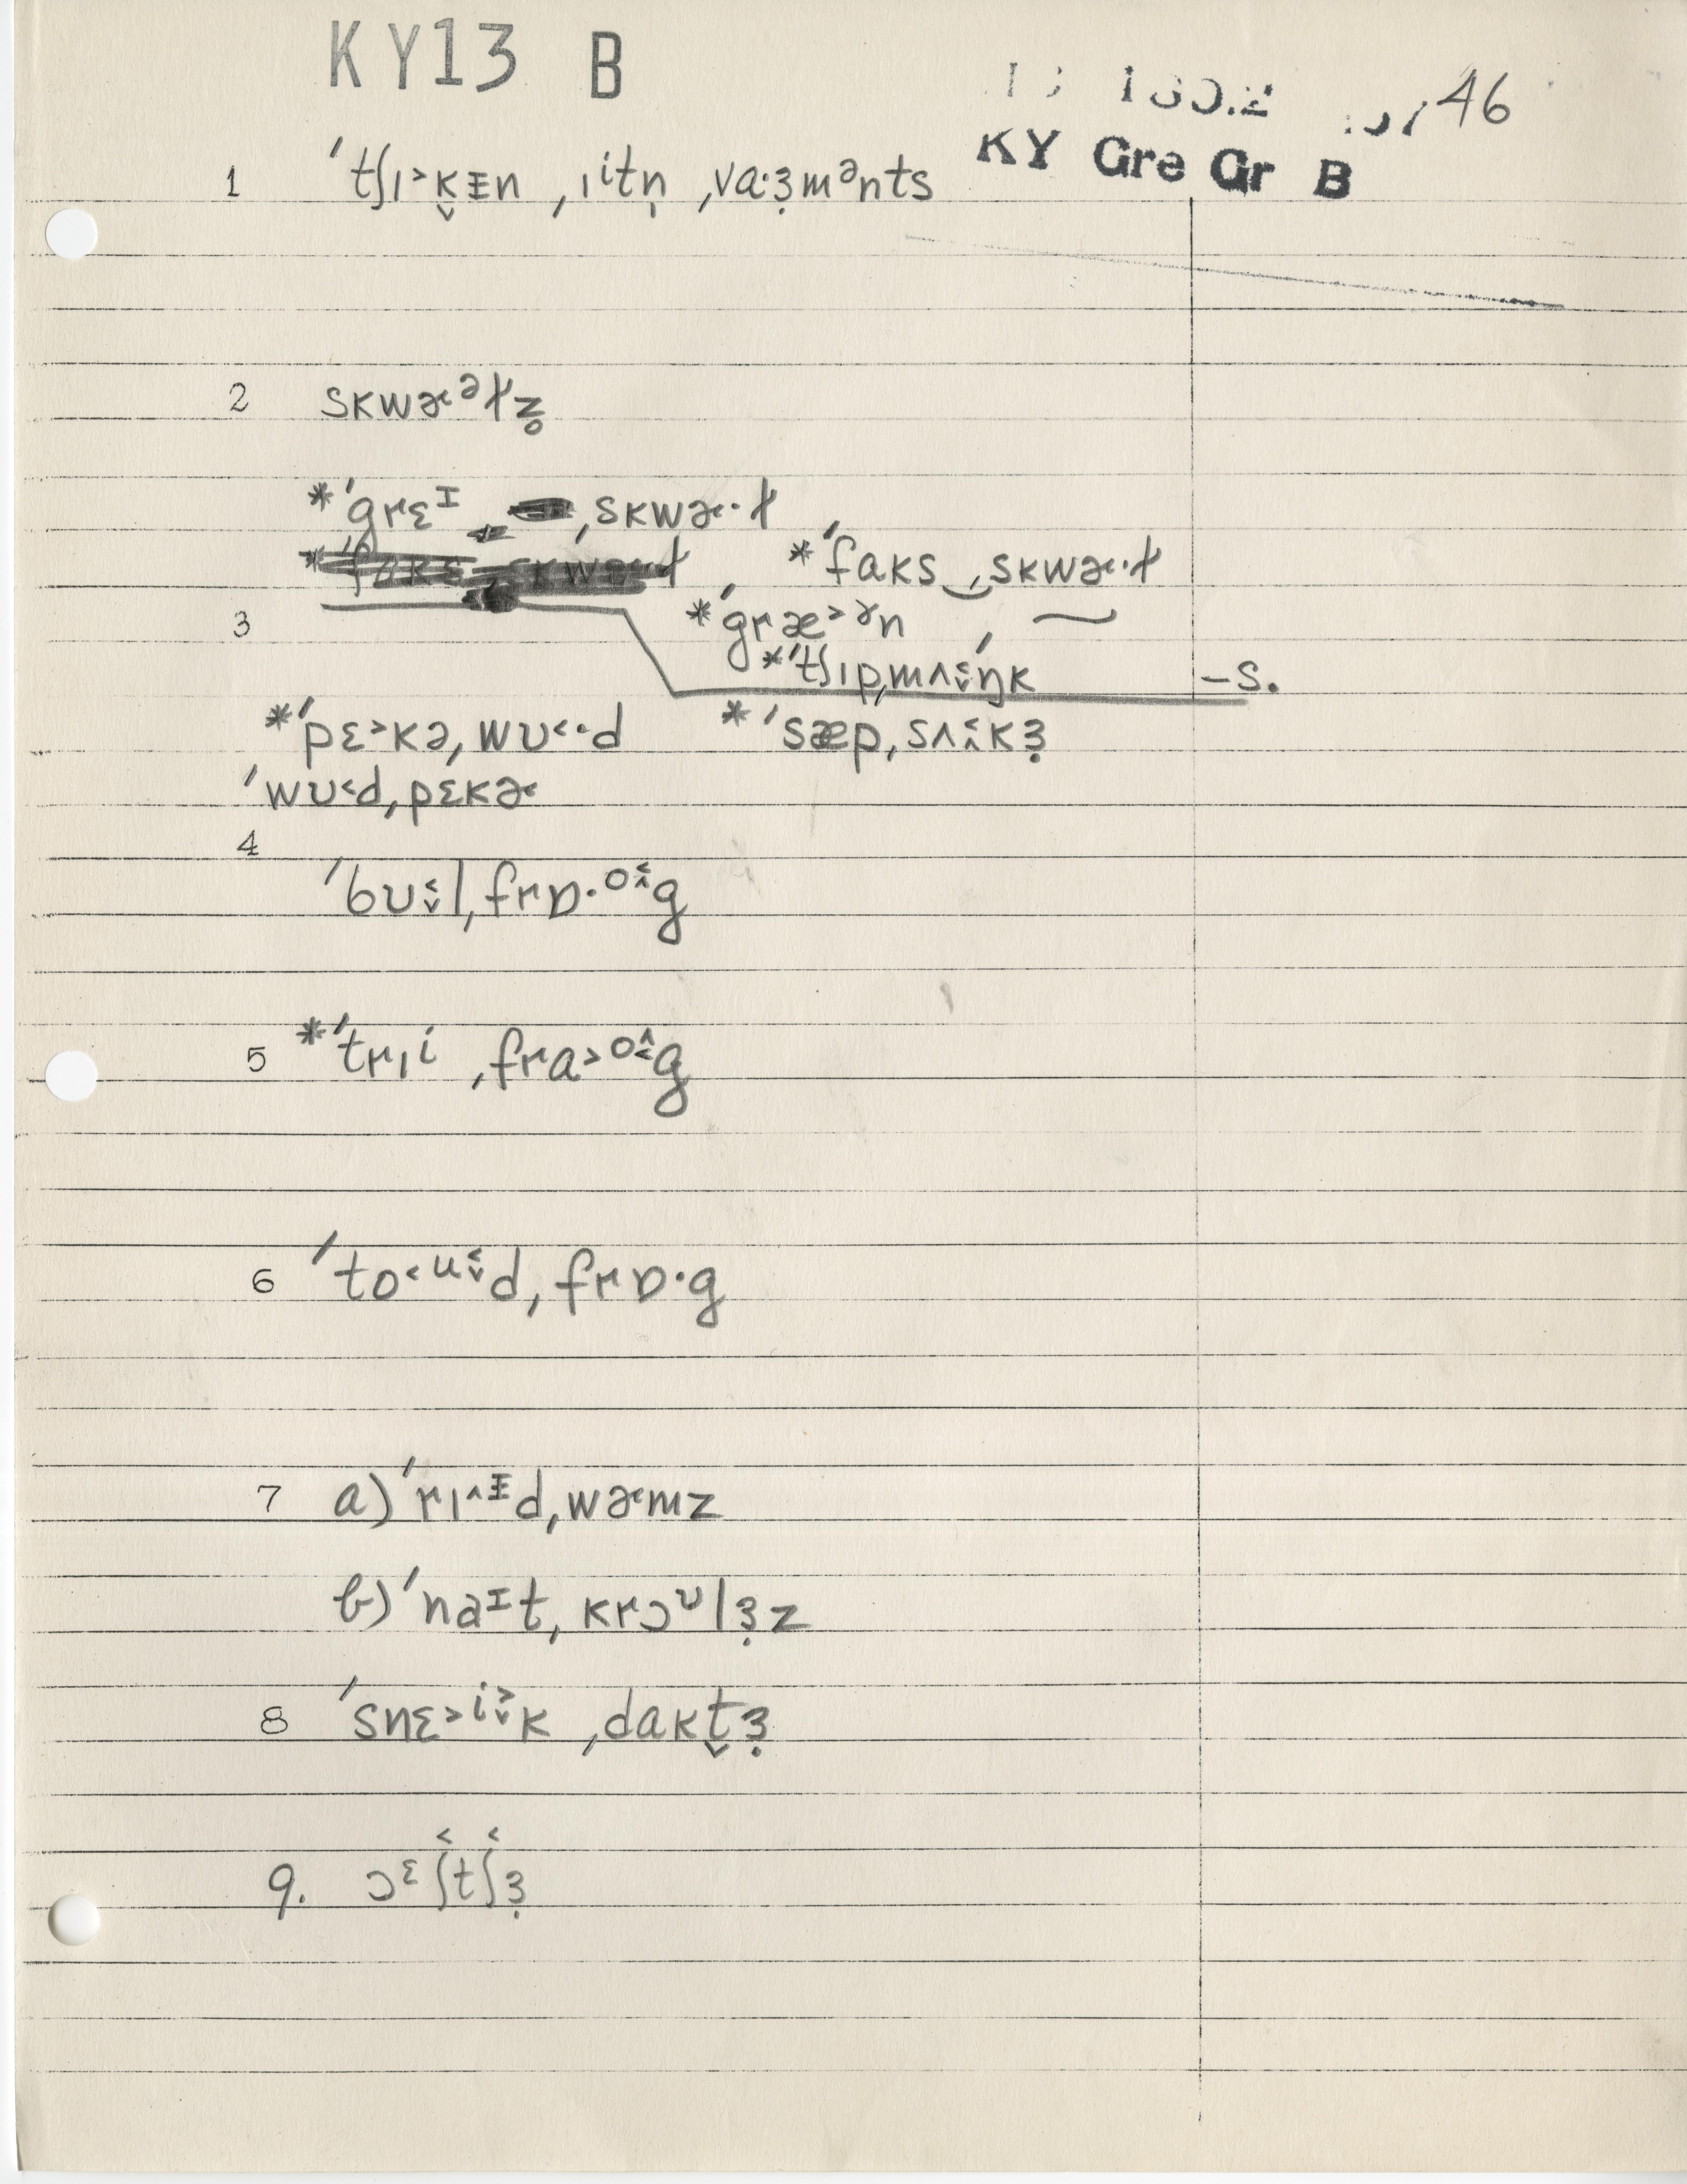 KY13 B
46
KY Gre Gr B
1 ˈtʃɪ˃k̬ᵻn ˌɪⁱtn̩ ˌvɑ·ɜ̣mᵊnts
2 skwɚᵊɫz̥
*ˈgrɛᴵ ˌskwɚ·ɫ
*ˈfɑks‿ˌskwɚ·ɫ
3 *ˈgræ˃ɤn
*ˈtʃɪpˌmʌ˂̬ŋk -s.
*ˈpɛ˃kəˌwʊ˂·d *ˈsæpˌsʌ˂̭kɜ̣
ˈwʊ˂dˌpɛkɚ
4
ˈbʊ˂̬lˌfrɒ·ᵒ˂̭g
5 *ˈtrɪⁱ ˌfrɑ˃ᵒ˂̭g
6 ˈto˂ᵘ˂̬dˌfrɒ·g
7 a) ˈrɪ˄ᵻdˌwɚmz
b) ˈnaᴵtˌkrɔᶷlɜ̣z
8 ˈsnɛ˃ⁱ˃̬k ˌdɑkt̬ɜ̣
9. ɔᵋʃ˂tʃ˂ɜ̣